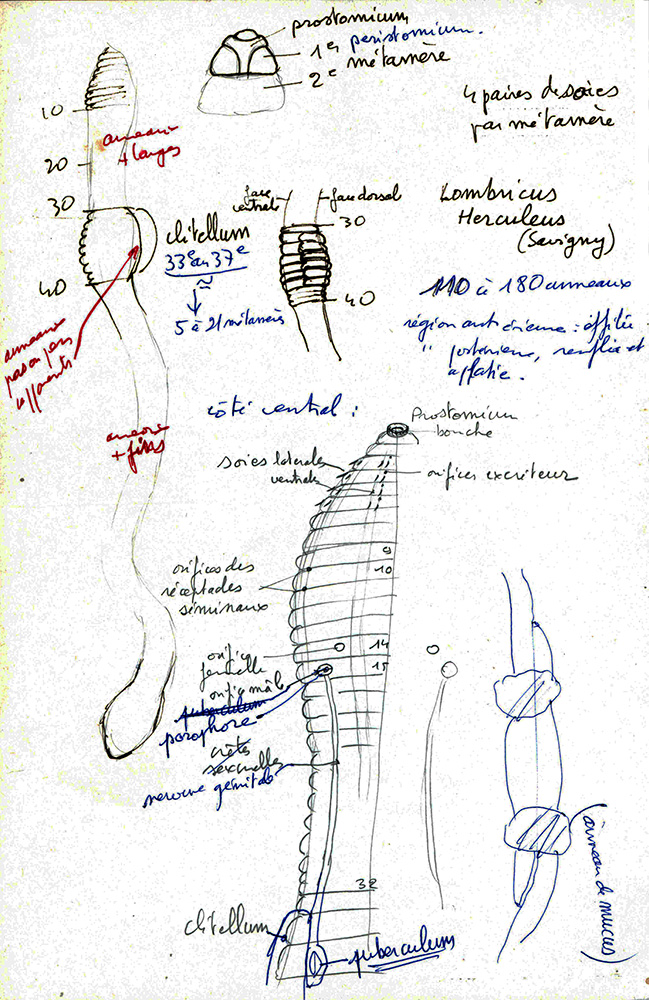 prostomium
1er peristomium.
2e métamère
4 paires de soies
par métamère
10
anneaux
+ larges
20
30
40
clitellum
33e au 37e
≈
5 à métamères
anneaux
apparents
anneaux
+ fins
face
ventrale
face dorsal
30
40
Lombricus
Herculeus
(Savigny)
110 à 180 anneaux
région antérieure : effilée
" postérieure, renflée et
aplatie.
côté ventral :
Prostomium
bouche
soies laterales
ventrales
orifices excréteur
9
10
orifices des
réceptacles
séminaux
orifice
femelle
14
15
orifice mâle
puberculum
porophore
crêtes
sexuelles
nervure génitale
32
clitellum
puberculum
(anneau de mucus)